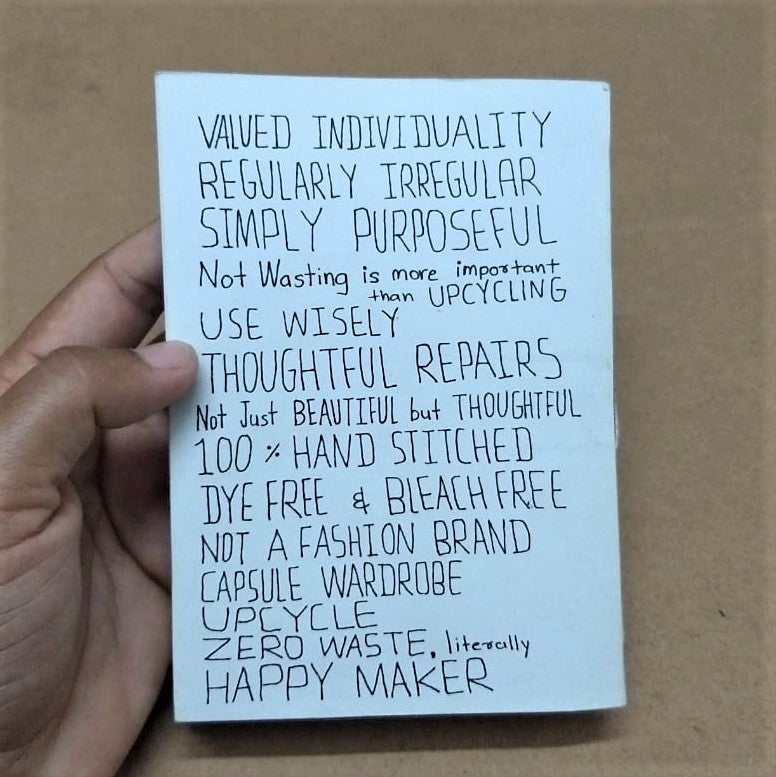 VALUED INDIVIDUALITY
REGULARLY IRREGULAR
SIMPLY PURPOSEFUL
Not Wasting is more important
than UPCYCLING
USE WISELY
THOUGHTFUL REPAIRS
Not Just BEAUTIFUL but THOUGHTFUL
100 % HAND STITCHED
DYE FREE & BLEACH FREE
NOT A FASHION BRAND
CAPSULE WARDROBE
UPCYCLE
ZERO WASTE, literally
HAPPY MAKER